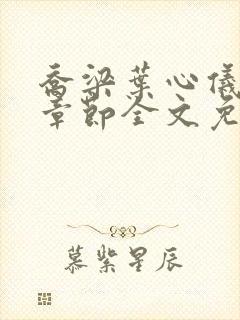 乔梁叶心仪
章节全文免
慕紫星辰